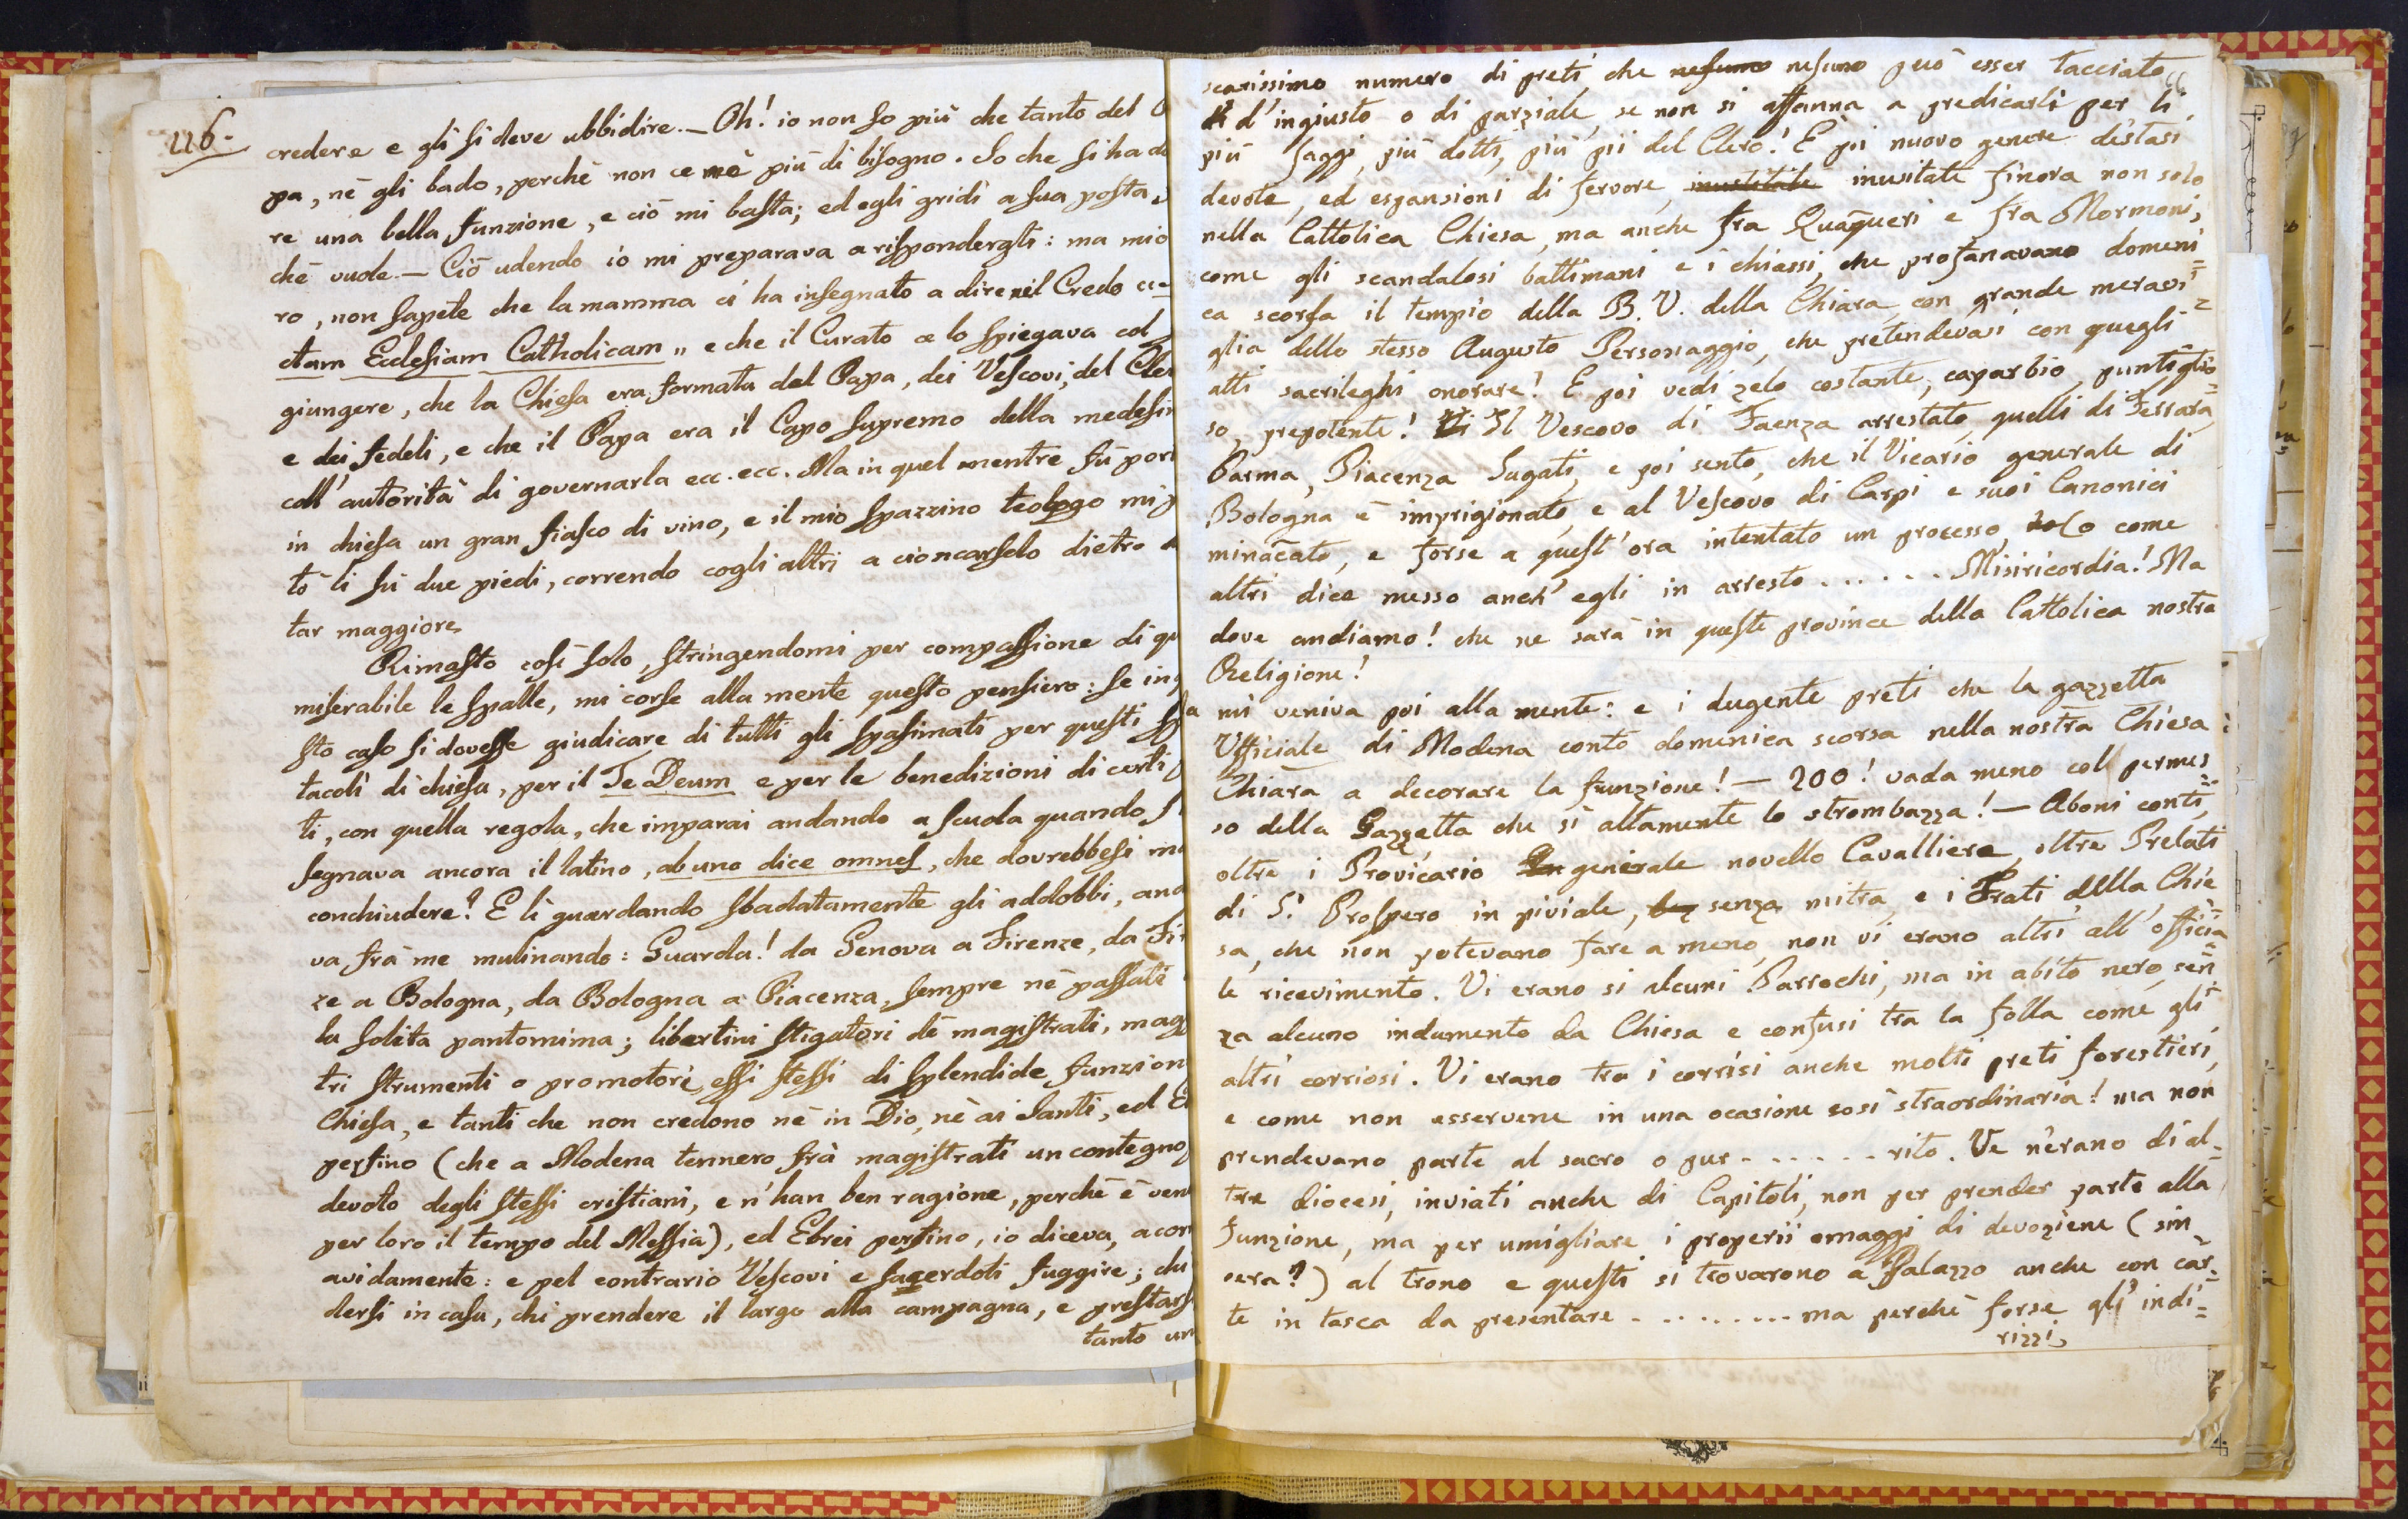 116.
credere e gli si deve ubbidire. — Oh! io non so più che tanto del
pa, nè gli bado, perchè non ce n'è più di bisogno. So che si ha da
re una bella funzione, e ciò mi basta; ed egli gridi a sua posta,
chè vuole. — Ciò udendo io mi preparava a rispondergli: ma mio
ro, non sapete che la mamma ci ha insegnato a dire nel Credo
ctam Ecclesiam Catholicam „ e che il Curato ce lo spiegava col
giungere, che la Chiesa era formata del Papa, dei Vescovi, del Cler
e dei fedeli, e che il Papa era il Capo supremo della medesi
coll'autorità di governarla ecc. ecc. Ma in quel mentre fu port
in chiesa un gran fiasco di vino, e il mio spazzino teologo mi
tò lì sù due piedi, correndo cogli altri a cioncarselo dietro
tar maggiore.
Rimasto così solo, stringendomi per compassione di qu
miserabile le spalle, mi corse alla mente questo pensiero: se in
sto caso si dovesse giudicare di tutti gli spasimati per questi sp
tacoli di chiesa, per il Te Deum e per le benedizioni di certi
ti, con quella regola, che imparai andando a scuola quando s
segnava ancora il latino, ab uno dice omnes, che dovrebbesi
conchiudere? E lì guardando sbadatamente gli addobbi, and
va frà me mulinando: Guarda! da Genova a Firenze, da Fi
ze a Bologna, da Bologna a Piacenza, sempre nè passati
la solita pantomima; libertini stigatori dè magistrati, mag
tri strumenti o promotori essi stessi di splendide funzion
Chiesa, e tanti che non credono nè in Dio, nè ai Santi, ed E
perfino (che a Modena tennero frà magistrati un contegno
devoto degli stessi cristiani, e n'han ben ragione, perchè è ven
per loro il tempo del Messia), ed Ebrei perfino, io diceva, acor
avidamente: e pel contrario Vescovi e sacerdoti fuggire; chi
dersi in casa, chi prendere il largo alla campagna, e prestars
tanto un
scarissimo numero di preti, che nesuno nesuno può esser tacciato
di d'ingiusto o di parziale, se non si affanna a predicarli per li
più saggi, più dotti, più pii del Clero! E poi nuovo genere d'estasi
devote, ed espansioni di fervore, inusitate finora non solo
nella Cattolica Chiesa, ma anche fra Quaqueri e fra Mormoni,
come gli scandalosi battimani e i chiassi, che profanavano domeni=
ca scorsa il tempio della B. V. della Chiara, con grande meravi=
glia dello stesso Augusto Personaggio, che pretendevasi con quegli
atti sacrileghi onorare! E poi vedi zelo costante, caparbio, puntiglio=
so, prepotente! Il Vescovo di Faenza arrestato, quelli di Ferrara,
Parma, Piacenza fugati, e poi sento, che il Vicario generale di
Bologna è imprigionato, e al Vescovo di Carpi e suoi Canonici
minacato, e forse a quest'ora intentato un processo, o come
altri dice messo anch'egli in arresto . . . . . . Misiricordia! Ma
dove andiamo! che ne sarà in queste province della Cattolica nostra
Religione!
mi veniva poi alla mente: e i dugente preti che la gazzetta
Ufficiale di Modena conto domenica scorsa nella nostra Chiesa
Chiara a decorare la funzione! — 200! vada meno col permes=
so della Gazzetta che sì altamente lo strombazza! — Aboni conti,
oltre i Provicario generale novello Cavalliere, oltre Prelati
di S. Prospero in piviale, senza mitra, e i Frati della Chie=
sa, che non potevano fare a meno, non vi erano altri all'officia=
le ricevimento. Vi erano si alcuni Parrochi, ma in abito nero, sen=
za alcuno indumento da Chiesa e confusi tra la folla come gli
altri corriosi. Vi erano tra i corrisi anche molti preti forestieri,
e come non esservene in una ocasione così straordinaria! ma non
prendevano parte al sacro o pur . . . . . . rito. Ve n'erano di al=
tre diocesi, inviati anche di Capitoli, non per prender parte alla
funzione, ma per umigliare i properii omaggi di devoziene (sin
cera?) al trono e questi si trovarono a Palazzo anche con car=
te in tasca da presentare . . . . . . . . . ma perchè forse gl'indi=
rizzi